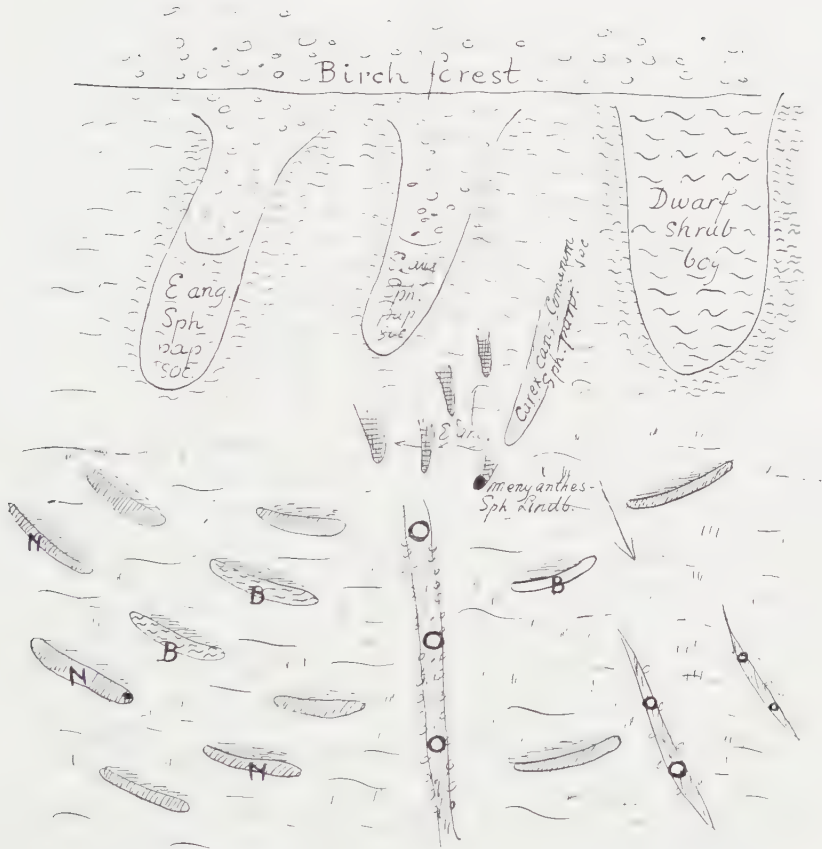 Birch forest
E ang
Sph
pap
soc.
pap
soc
Dwarf
shrub
bog
Carex can.- Comarum
Sph. soc
menyanthes-
Sph Lindb.
N
B
B
B
N
N